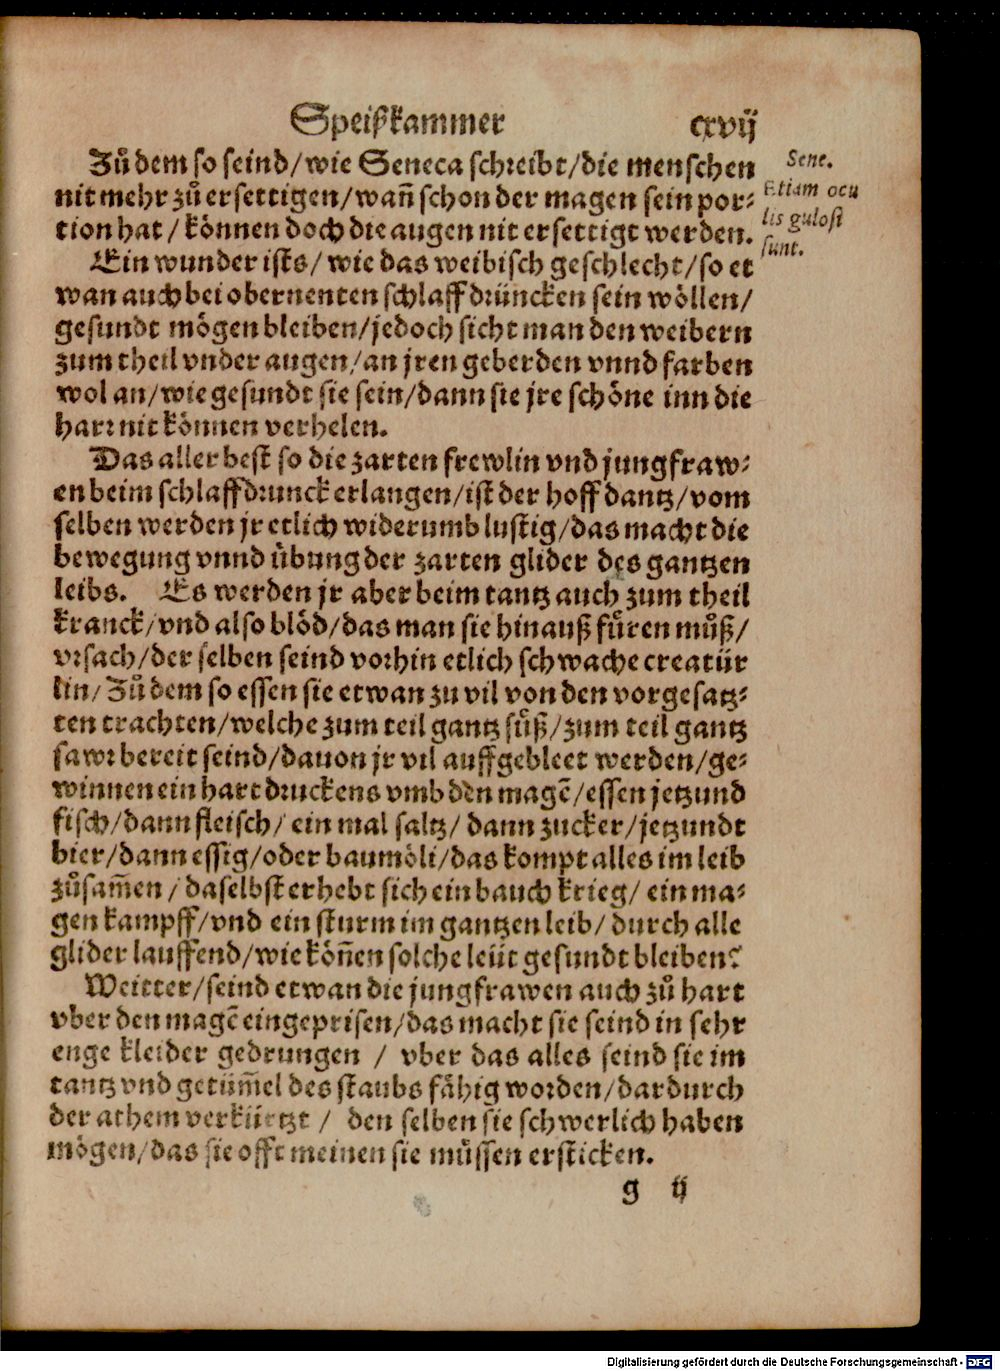 Speißkammer cxvij
Zů dem so seind/wie Seneca schreibt/die menschen
nit mehr zů ersettigen/wañ schon der magen sein por⸗
tion hat/können doch die augen nit ersettigt werden.
Sene.
Etiam ocu
lis gulosi
sunt.
Ein wunder ists/wie das weibisch geschlecht/so et
wan auch bei obernenten schlaff drüncken sein wöllen/
gesundt mögen bleiben/jedoch sicht man den weibern
zum theil vnder augen/an jren geberden vnnd farben
wol an/wie gesundt sie sein/dann sie jre schöne inn die
harr nit können verhelen.
Das aller best so die zarten frewlin vnd jungfraw⸗
en beim schlaffdrunck erlangen/ist der hoff dantz/vom
selben werden jr etlich widerumb lustig/das macht die
bewegung vnnd übung der zarten glider des gantzen
leibs. Es werden jr aber beim tantz auch zum theil
kranck/vnd also blöd/das man sie hinauß füren můß/
vrsach/der selben seind vorhin etlich schwache creatür
lin/Zů dem so essen sie etwan zu vil von den vorgesatz⸗
ten trachten/welche zum teil gantz süß/zum teil gantz
sawr bereit seind/dauon jr vil auffgebleet werden/ge⸗
winnen ein hart druckens vmb den magē/essen jetzund
fisch/dann fleisch/ein mal saltz/dann zucker/jetzundt
bier/dann essig/oder baumöli/das kompt alles im leib
zůsam̃en/daselbst erhebt sich ein bauch krieg/ein ma⸗
gen kampff/vnd ein sturm im gantzen leib/durch alle
glider lauffend/wie köñen solche leüt gesundt bleiben?
Weitter/seind etwan die jungfrawen auch zů hart
vber den magē eingeprisen/das macht sie seind in sehr
enge kleider gedrungen / vber das alles seind sie im
tantz vnd getüm̃el des staubs fähig worden/dardurch
der athem verkürtzt / den selben sie schwerlich haben
mögen/das sie offt meinen sie müssen ersticken.
g ij
Digitalisierung gefördert durch die Deutsche Forschungsgemeinschaft - DFG